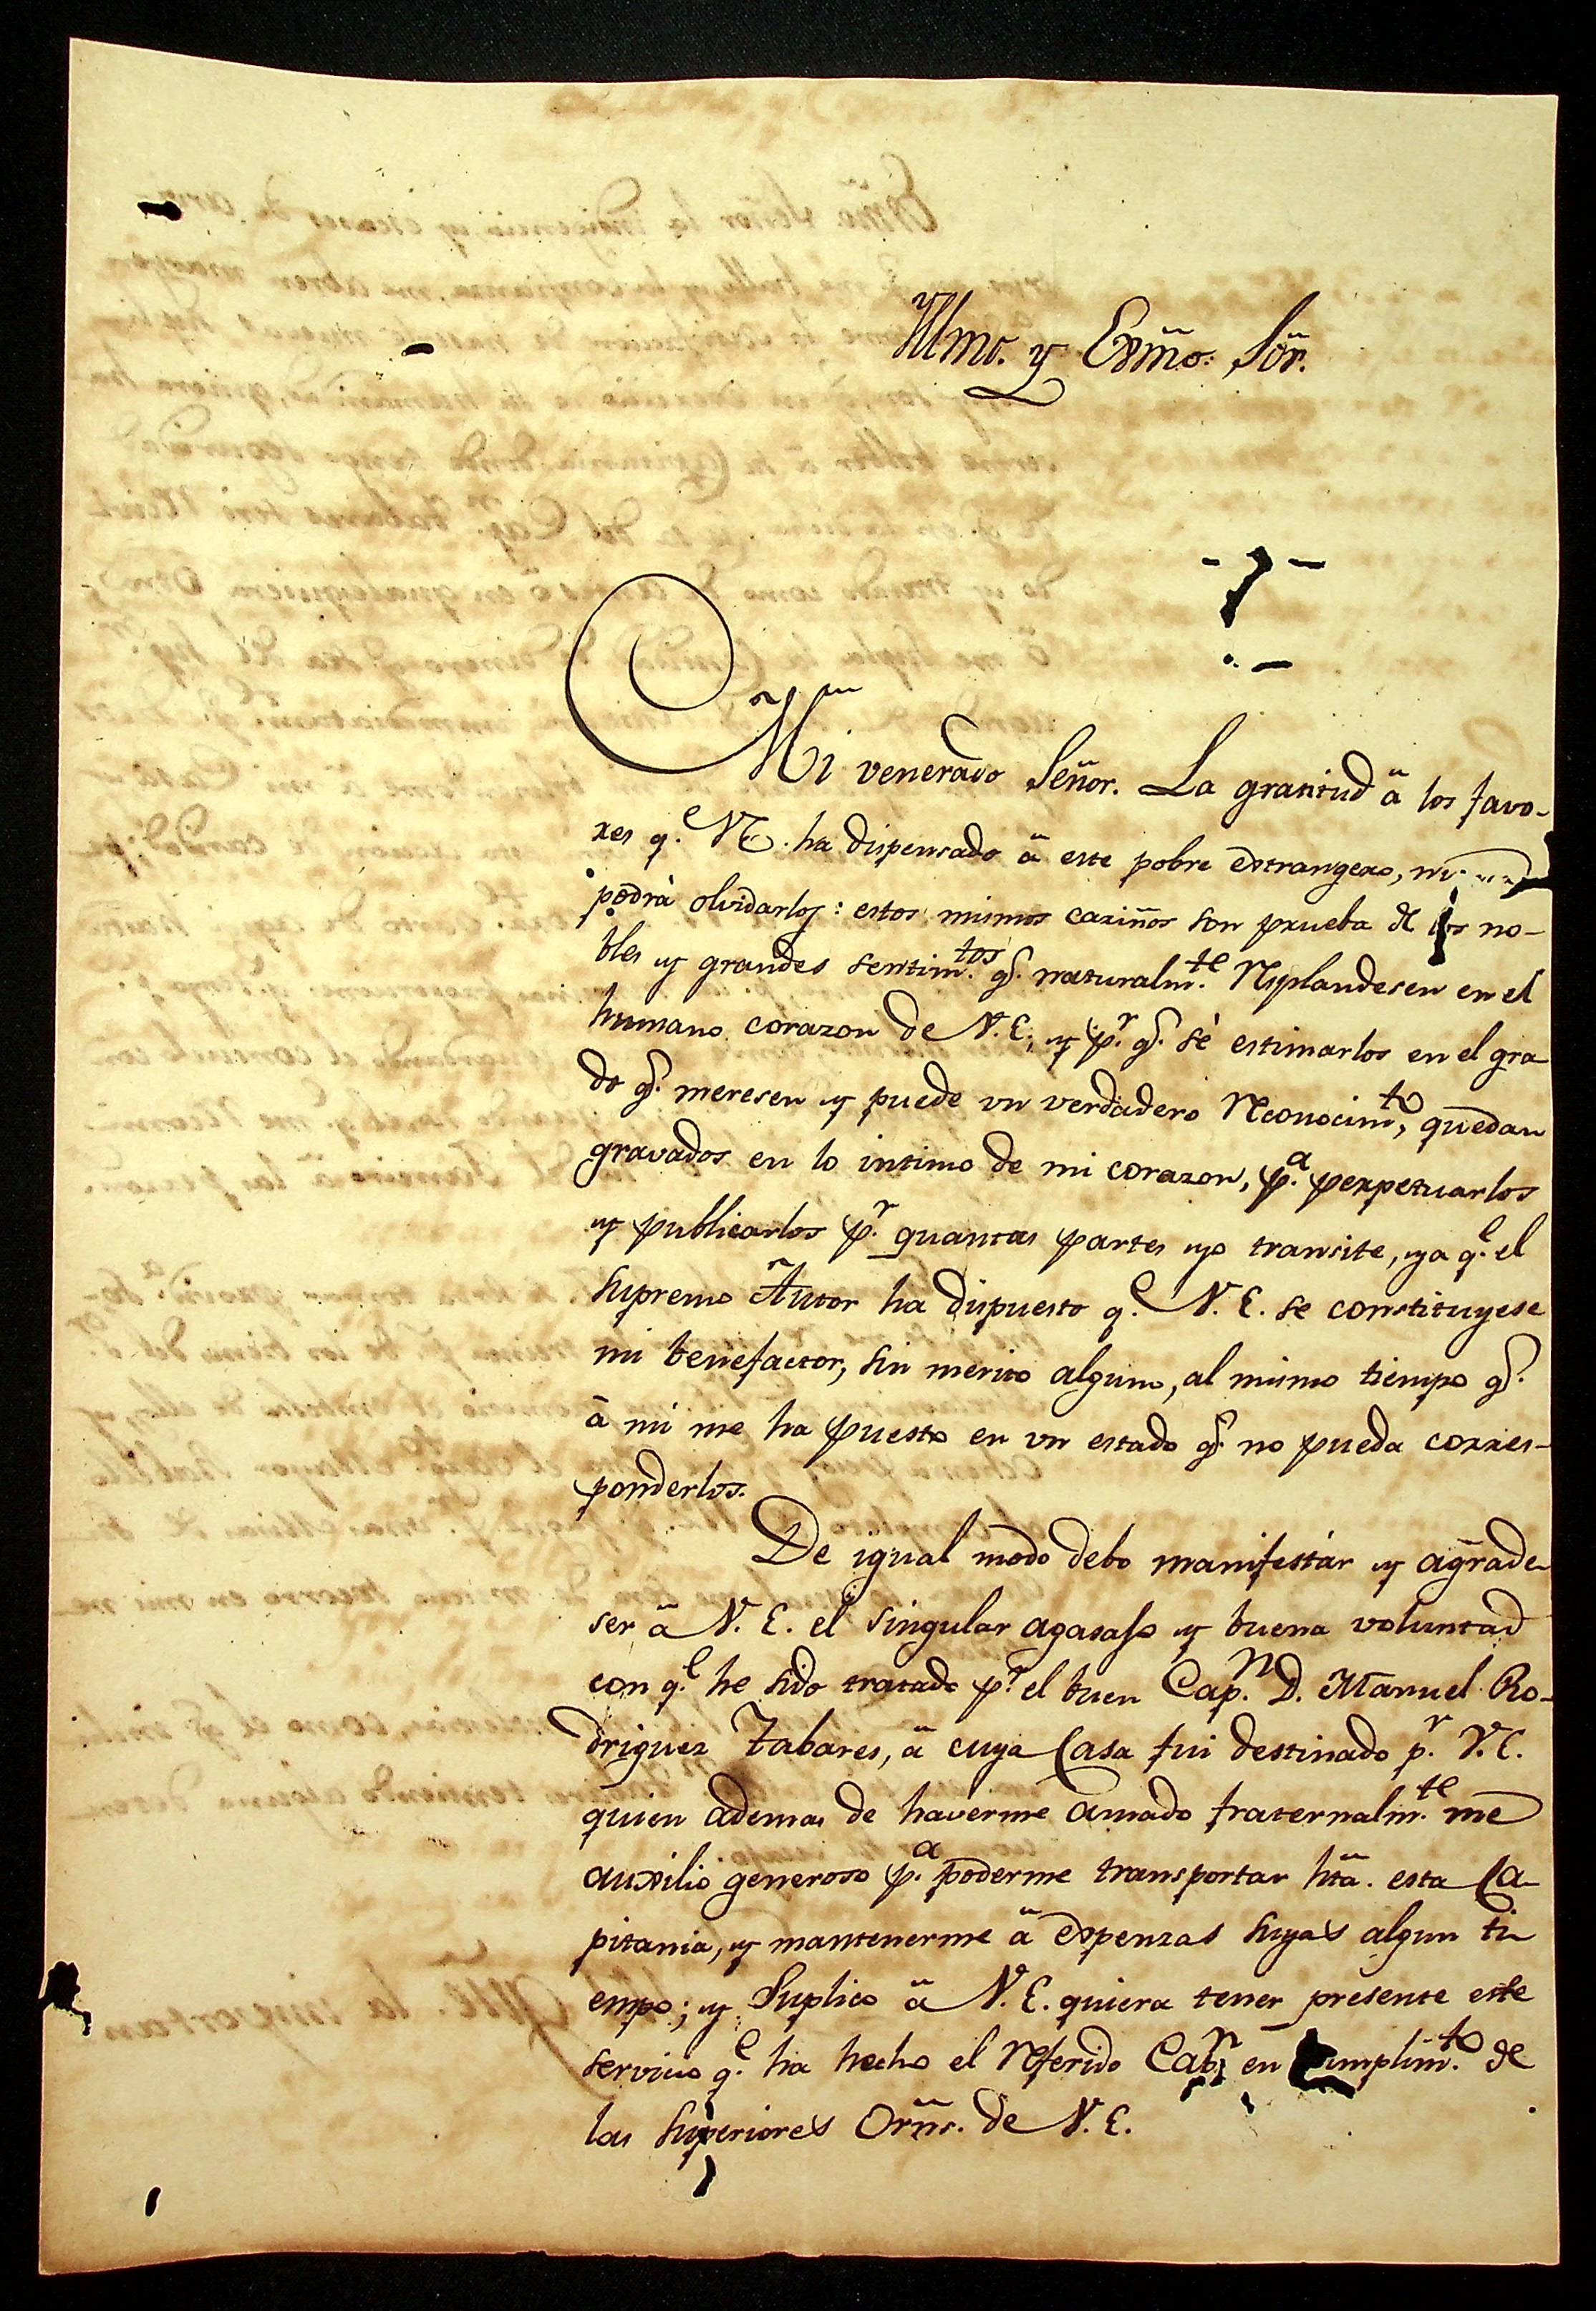 Yllmo. y Exmõ. Sõr.
Mi venerado Señor. La gratitud â los favo-
res q.e V.E. ha dispensado â este pobre extrangero,
podrà olvidarlos: estos mismos cariños son prueba de los no-
bles y grandes sentim.tos q.e naturalm.te resplandesen en el
humano corazon de V.E., y p.r q.e sè estimarlos en el gra-
do q.e meresen y puede un verdadero reconocim.to, quedan
gravados en lo intimo de mi corazon, p.a perpetuarlos
y publicarlos p.r quantas partes yo transite, ya q.e el
Supremo Autor ha dispuesto q.e V.E. se constituyese
mi benefactor, sin merito alguno, al mismo tiempo q.e
â mi me ha puesto en un estado q.e no pueda corres-
ponderlos.
De igual modo debo manifestàr y agrade-
ser â V.E. el singular agasajo y buena voluntad
con q.e he sido tratado p.r el buen Cap.n D. Manuel Ro-
driguez Tabares, â cuya Casa fui destinado p.r V.E.
quien ademas de haverme amado fraternalm.te me
auxilio generoso p.a poderme transportar htã. esta Ca-
pitania, y mantenerme â expenzas suyas algun ti-
empo; y Suplico â V.E. quiera tener presente este
servicio q.e ha hecho el referido Cap.n en cumplim.to de
las Superiores Orñs. de V.E.